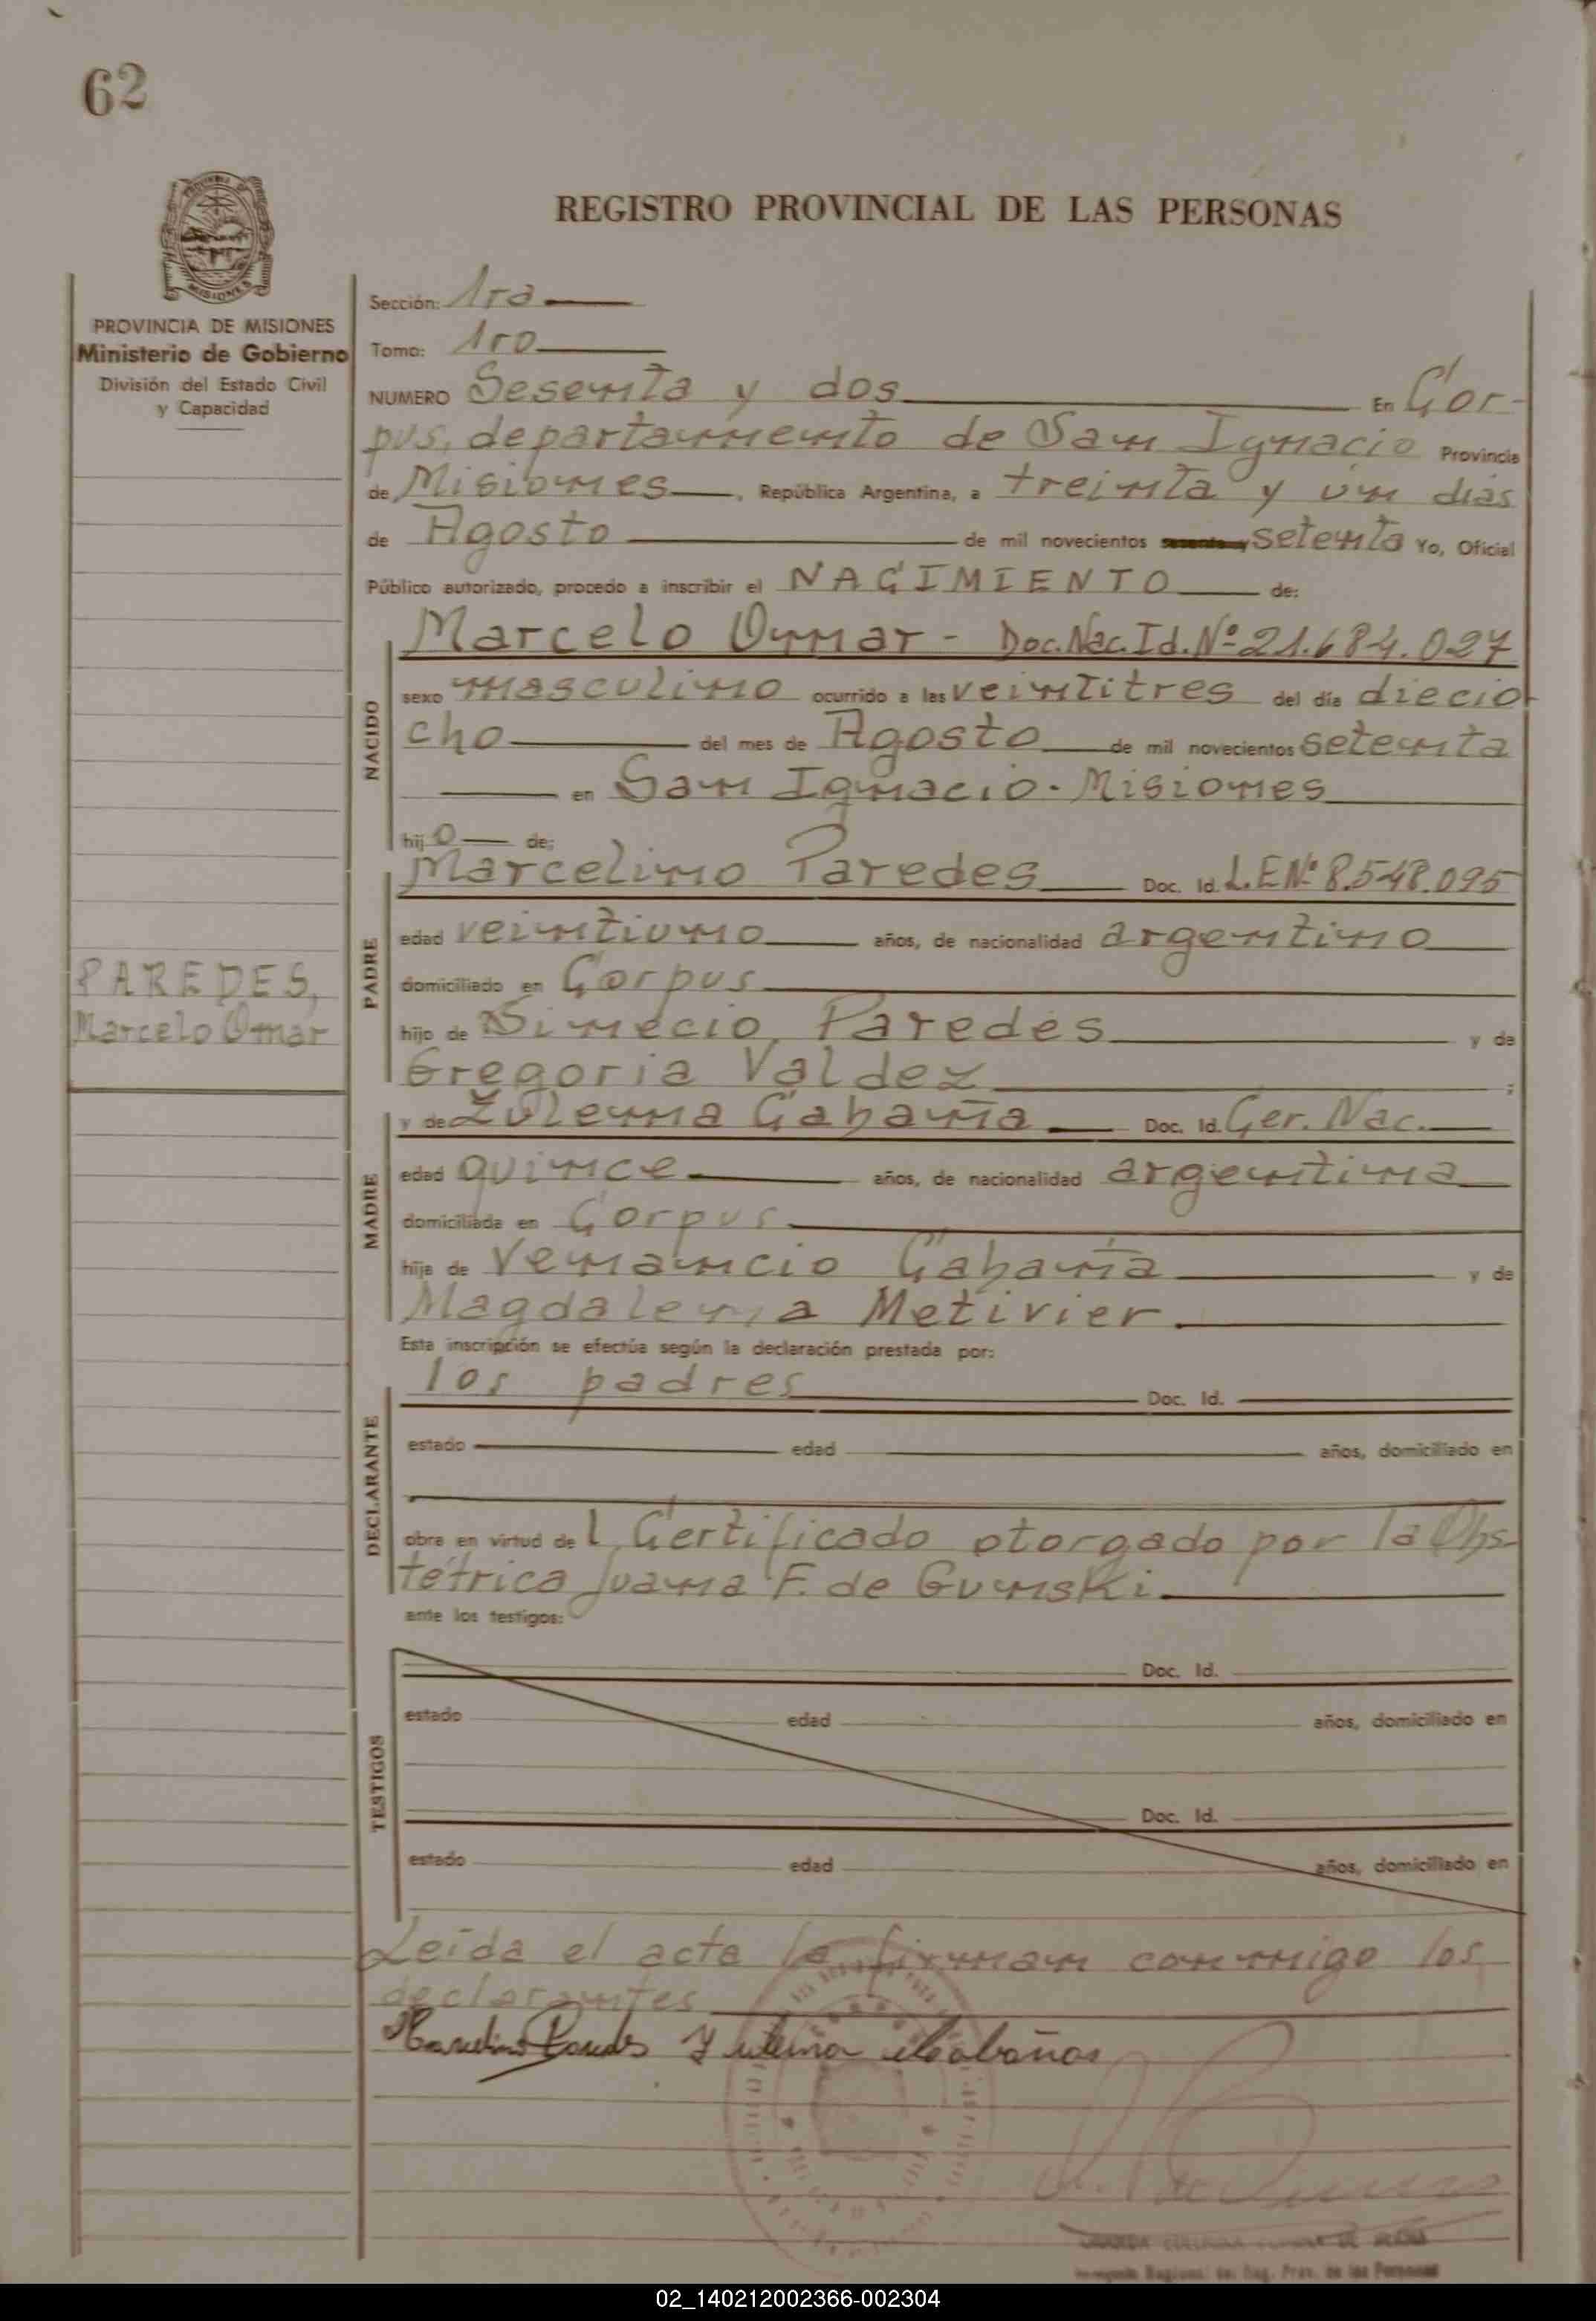 62
REGISTRO PROVINCIAL DE LAS PERSONAS
MISIONES
PROVINCIA DE MISIONES
Ministerio de Gobierno
División del Estado Civil
y Capacidad
Sección: 1ra
Tomo: 1ro
NUMERO Sesenta y dos En Cor-
pus, departamento de San Ignacio Provincia
de Misiones, República Argentina, a treinta y ún días
de Agosto de mil novecientos setenta Yo, Oficial
Público autorizado, procedo a inscribir el NACIMIENTO de:
Marcelo Omar - Doc. Nac. Id. Nº 21.684.027
NACIDO
sexo masculino ocurrido a las veintitres del día diecio
cho del mes de Agosto de mil novecientos setenta
en San Ignacio - Misiones
hijo de:
PADRE
Marcelino Paredes Doc. Id. L.E Nº 8.548.095
edad veintiuno años, de nacionalidad argentino
domiciliado en Corpus
PAREDES,
Marcelo Omar
hijo de Simecio Paredes y de
Gregoria Valdez ;
MADRE
y de Zulema Cabaña Doc. Id. Cer. Nac.
edad quince años, de nacionalidad argentina
domiciliada en Corpus
hija de Venancio Cabaña y de
Magdalena Metivier
Esta inscripción se efectúa según la declaración prestada por:
DECLARANTE
los padres Doc. Id.
estado edad años, domiciliado en
obra en virtud de l Certificado otorgado por la Obs-
tétrica Juana F. de Gunski
ante los testigos:
TESTIGOS
Doc. Id.
estado edad años, domiciliado en
Doc. Id.
estado edad años, domiciliado en
Leída el acta la firman conmigo los
declarantes
Marcelino Paredes Zulema Cabañas
DE
Reg. Prov. de las Personas
02_140212002366-002304